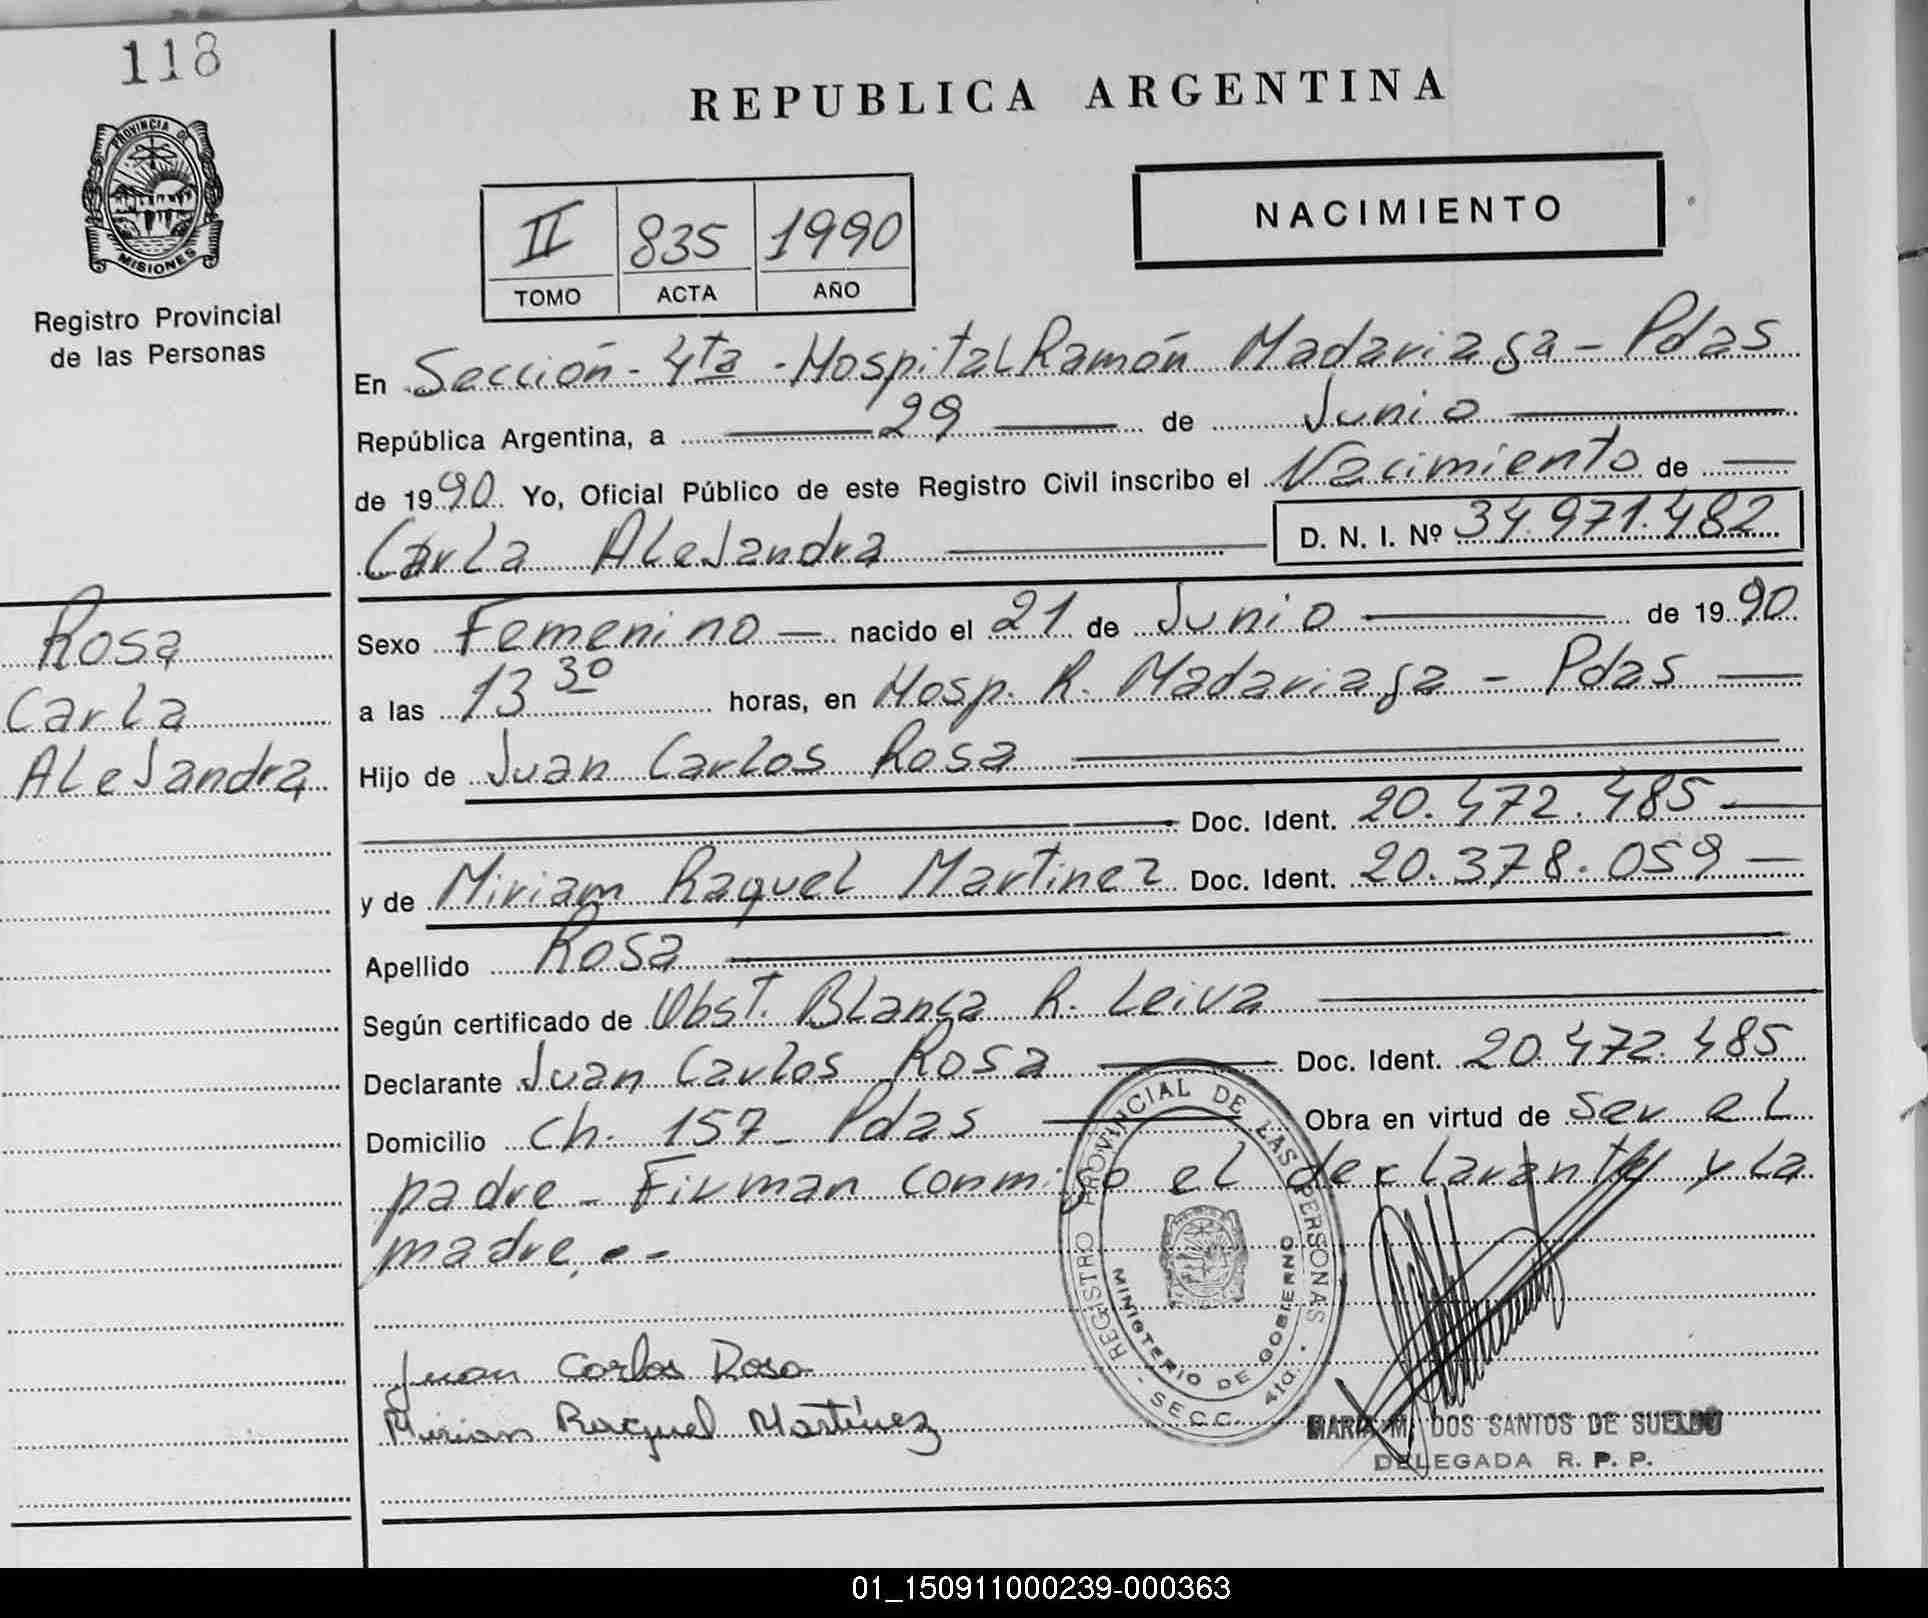 118
PROVINCIA DE
MISIONES
Registro Provincial
de las Personas
REPUBLICA ARGENTINA
II 835 1990
TOMO ACTA AÑO
NACIMIENTO
En Sección - 4ta - Hospital Ramón Madariaga - Pdas
República Argentina, a 29 de Junio
de 1990. Yo, Oficial Público de este Registro Civil inscribo el Nacimiento de
Carla Alejandra D. N. I. Nº 34.971.482
Rosa
Carla
Alejandra
Sexo Femenino nacido el 21 de Junio de 1990
a las 13 30 horas, en Hosp. R. Madariaga - Pdas
Hijo de Juan Carlos Rosa
Doc. Ident. 20.472.485
y de Miriam Raquel Martinez Doc. Ident. 20.378.059
Apellido Rosa
Según certificado de Obst. Blanca R. Leiva
Declarante Juan Carlos Rosa Doc. Ident. 20.472.485
Domicilio Ch. 157 - Pdas Obra en virtud de ser el
padre - Firman conmigo el declarante y la
madre. -
REGISTRO PROVINCIAL DE LAS PERSONAS - SECC. 4ta.
MINISTERIO DE GOBIERNO
Juan Carlos Rosa
Mirian Raquel Martínez
MARIA M. DOS SANTOS DE SUELDO
DELEGADA R. P. P.
01_150911000239-000363